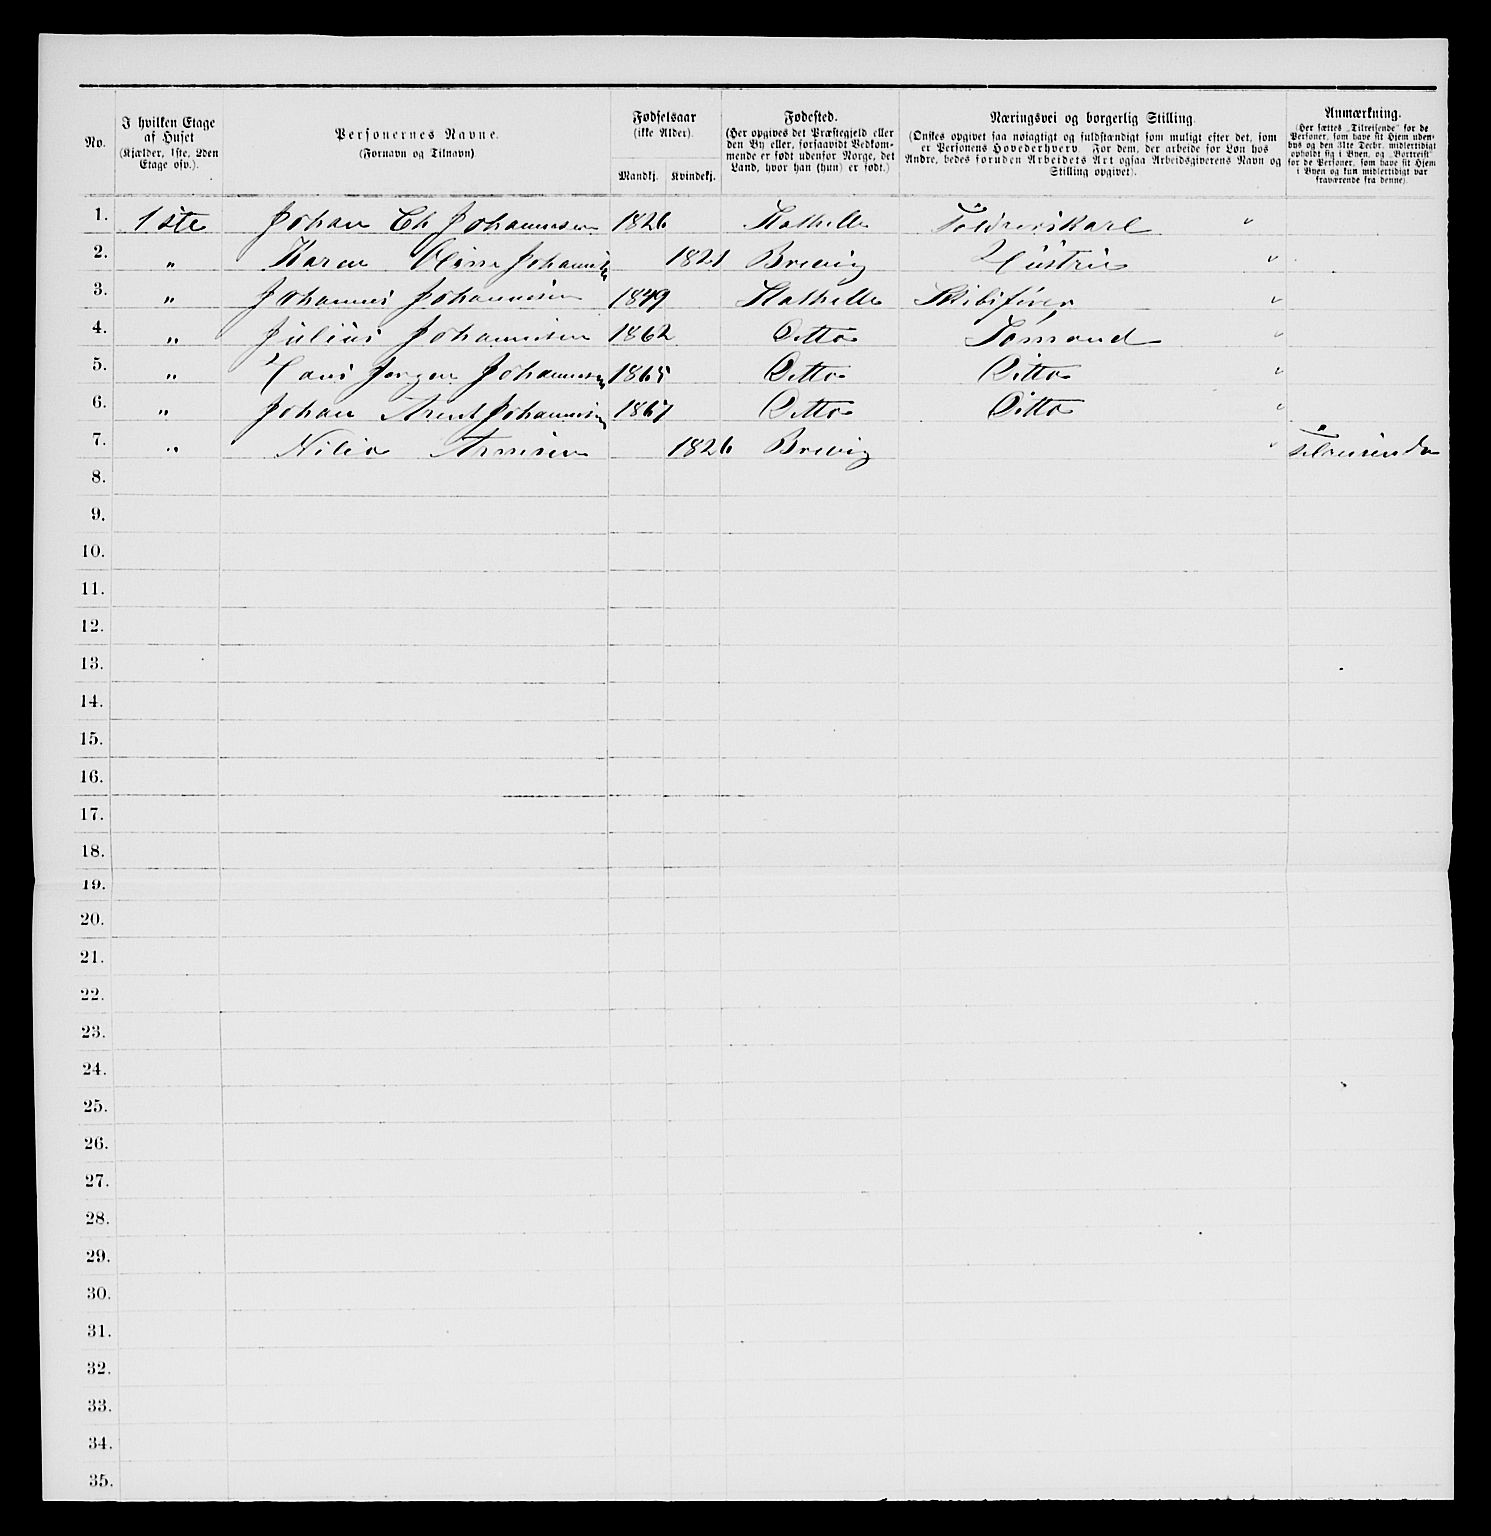 No.
I hvilken Etage
af Huset
(Kjælder, 1ste, 2den
Etage osv.).
Personernes Navne.
(Fornavn og Tilnavn)
Fødselsaar
(ikke Alder).
Mandkj. Kvindekj.
Fødested.
(Her opgives det Præstegjeld eller
den By eller, forsaavidt Vedkom-
mende er født udenfor Norge, det
Land, hvor han (hun) er født.)
Næringsvei og borgerlig Stilling.
(Ønskes opgivet saa nøiagtigt og fuldstændigt som muligt efter det, som
er Personens Hovederhverv. For dem, der arbeide for Løn hos
Andre, bedes foruden Arbeidets Art ogsaa Arbeidsgiverens Navn og
Stilling opgivet).
Anmærkning.
(Her sættes „Tilreisende“ for de
Personer, som have sit Hjem uden-
bys og den 31te Decbr. midlertidigt
opholdt sig i Byen, og „Bortreist“
for de Personer, som have sit Hjem
i Byen og kun midlertidigt var
fraværende fra denne).
1. 1ste Johan Ch Johannesen 1826 Stathelle Toldrorskarl "
2. " Karen Johannesen 1821 Brevig Hustrue "
3. " Johannes Johannesen 1849 Stathelle Skibsfører "
4. " Julius Johannesen 1862 Ditto Sømand "
5. " Hans Jørgen Johannesen 1865 Ditto Ditto "
6. " Johan Arent Johannesen 1867 Ditto Ditto "
7. " 1826 Brevig " Tilreisende
8.
9.
10.
11.
12.
13.
14.
15.
16.
17.
18.
19.
20.
21.
22.
23.
24.
25.
26.
27.
28.
29.
30.
31.
32.
33.
34.
35.